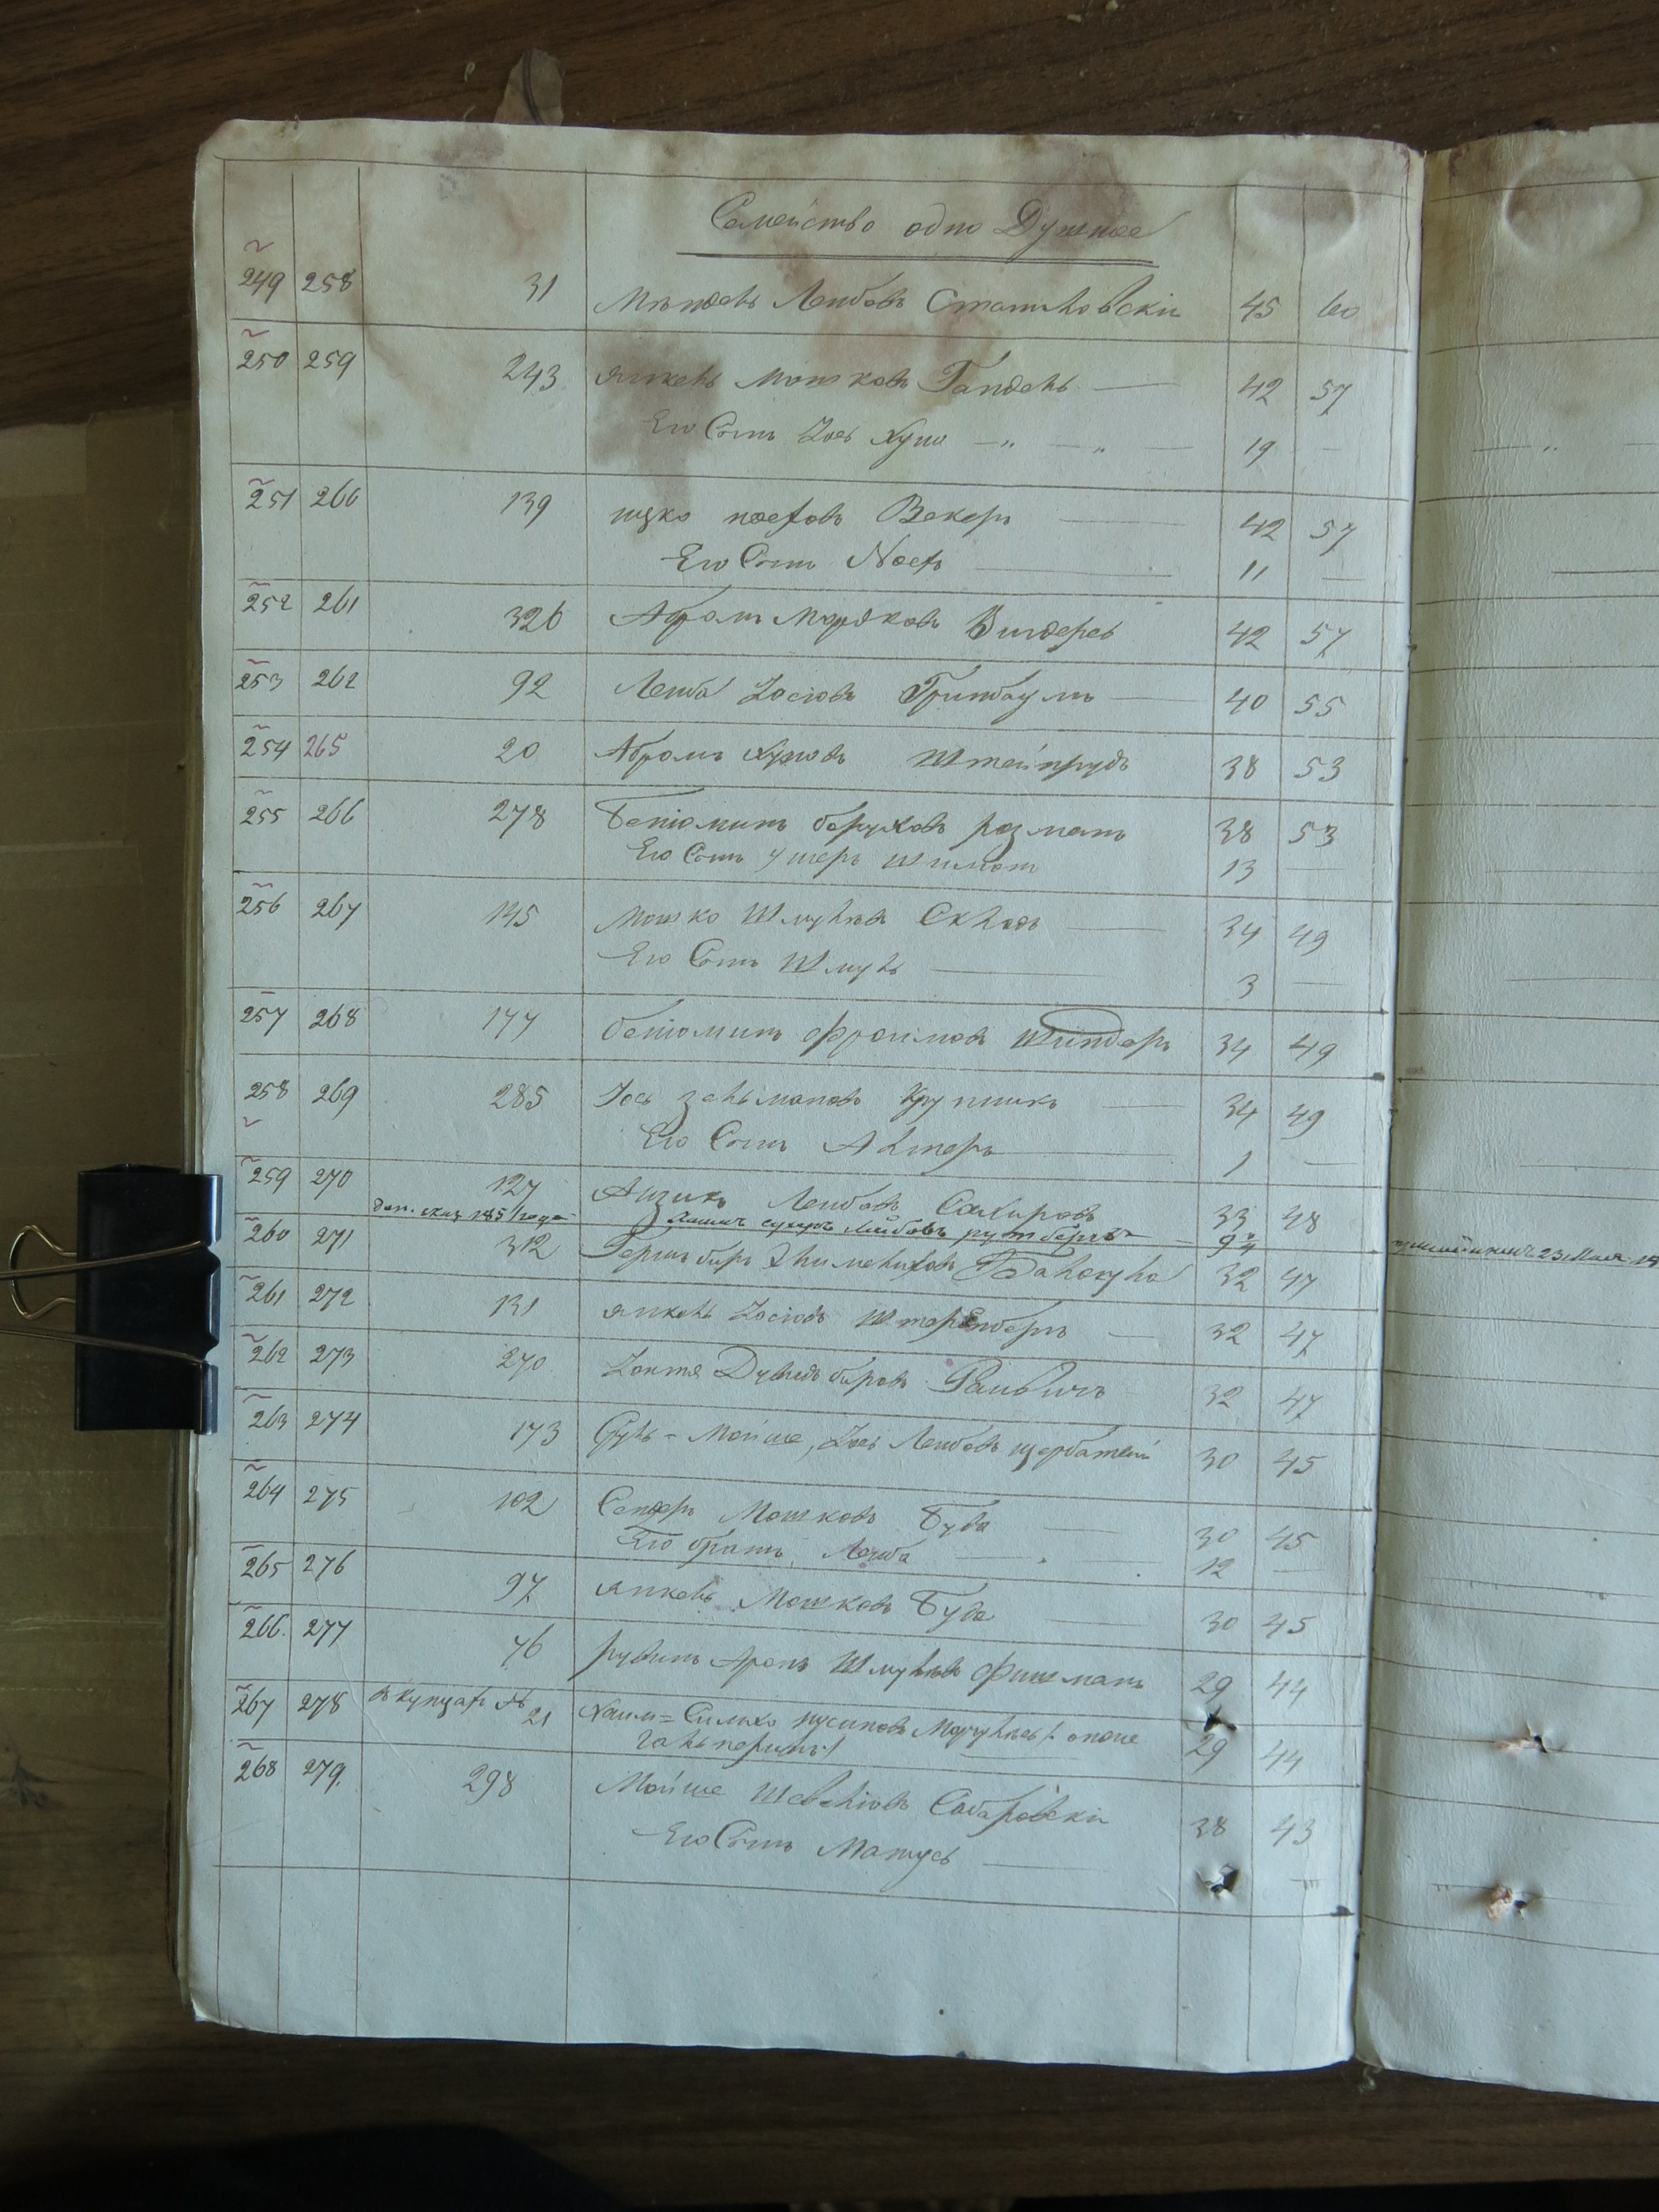 Семейство одно Душное
249 258 31 Мендель Лейбовъ Станиковскiй 45 60
250 259 243 Янкель Мошковъ Гандель — 42 57
Его Сынъ Iось Хуна — „ — „ — 19 —
251 260 139 ицко носховъ Векеръ — 42 57
Его Сынъ Носх — 11 —
252 261 326 Абрамъ Мордковъ 42 57
253 262 92 Лейба Iосiовъ Гринбаумъ — 40 55
254 265 20 Абрамъ Хуновъ Штейнрудъ 38 53
255 266 278 Бенiоминъ боруховъ розманъ 38 53
Его Сынъ Ушеръ Шимон 13 —
256 267 145 Мошко Шмулевъ Складъ — 34 49
Его Сынъ Шмуль — 3 —
257 268 177 бенiоминъ фроимовъ Шнидеръ 34 49
258 269 285 Iось зельмановъ Крупникъ — 34 49
Его Сынъ Алтеръ — 1 —
259 270 127 Айзикъ Лейбовъ Сахировъ 33 48
доп. сказ 1851 года Лейбовъ рутбергъ — 9 3/4
260 271 312 Гершъ беръ 32 47
261 272 131 янкель Iосiовъ Штеренберъ — 32 47
262 273 270 Дувидъ беровъ 32 47
263 274 173 Суль - Мойше, Iось Лейбовъ щербатый 30 45
264 275 102 Сендеръ Мошковъ Буда — 30 45
Его братъ Лейба 12 —
265 276 97 янкель Мошковъ Буда — 30 45
266. 277 76 рувинъ Аронъ Шмулевъ Фишманъ 29 44
267 278 в купцах № 21 Хаим = Симхо нусиновъ /: онже
Гальперинъ :/ — 29 44
268 279. 298 Мойше Шевелiовъ Сабаровскiй 28 43
Его Сынъ Матусъ —
23 Мая